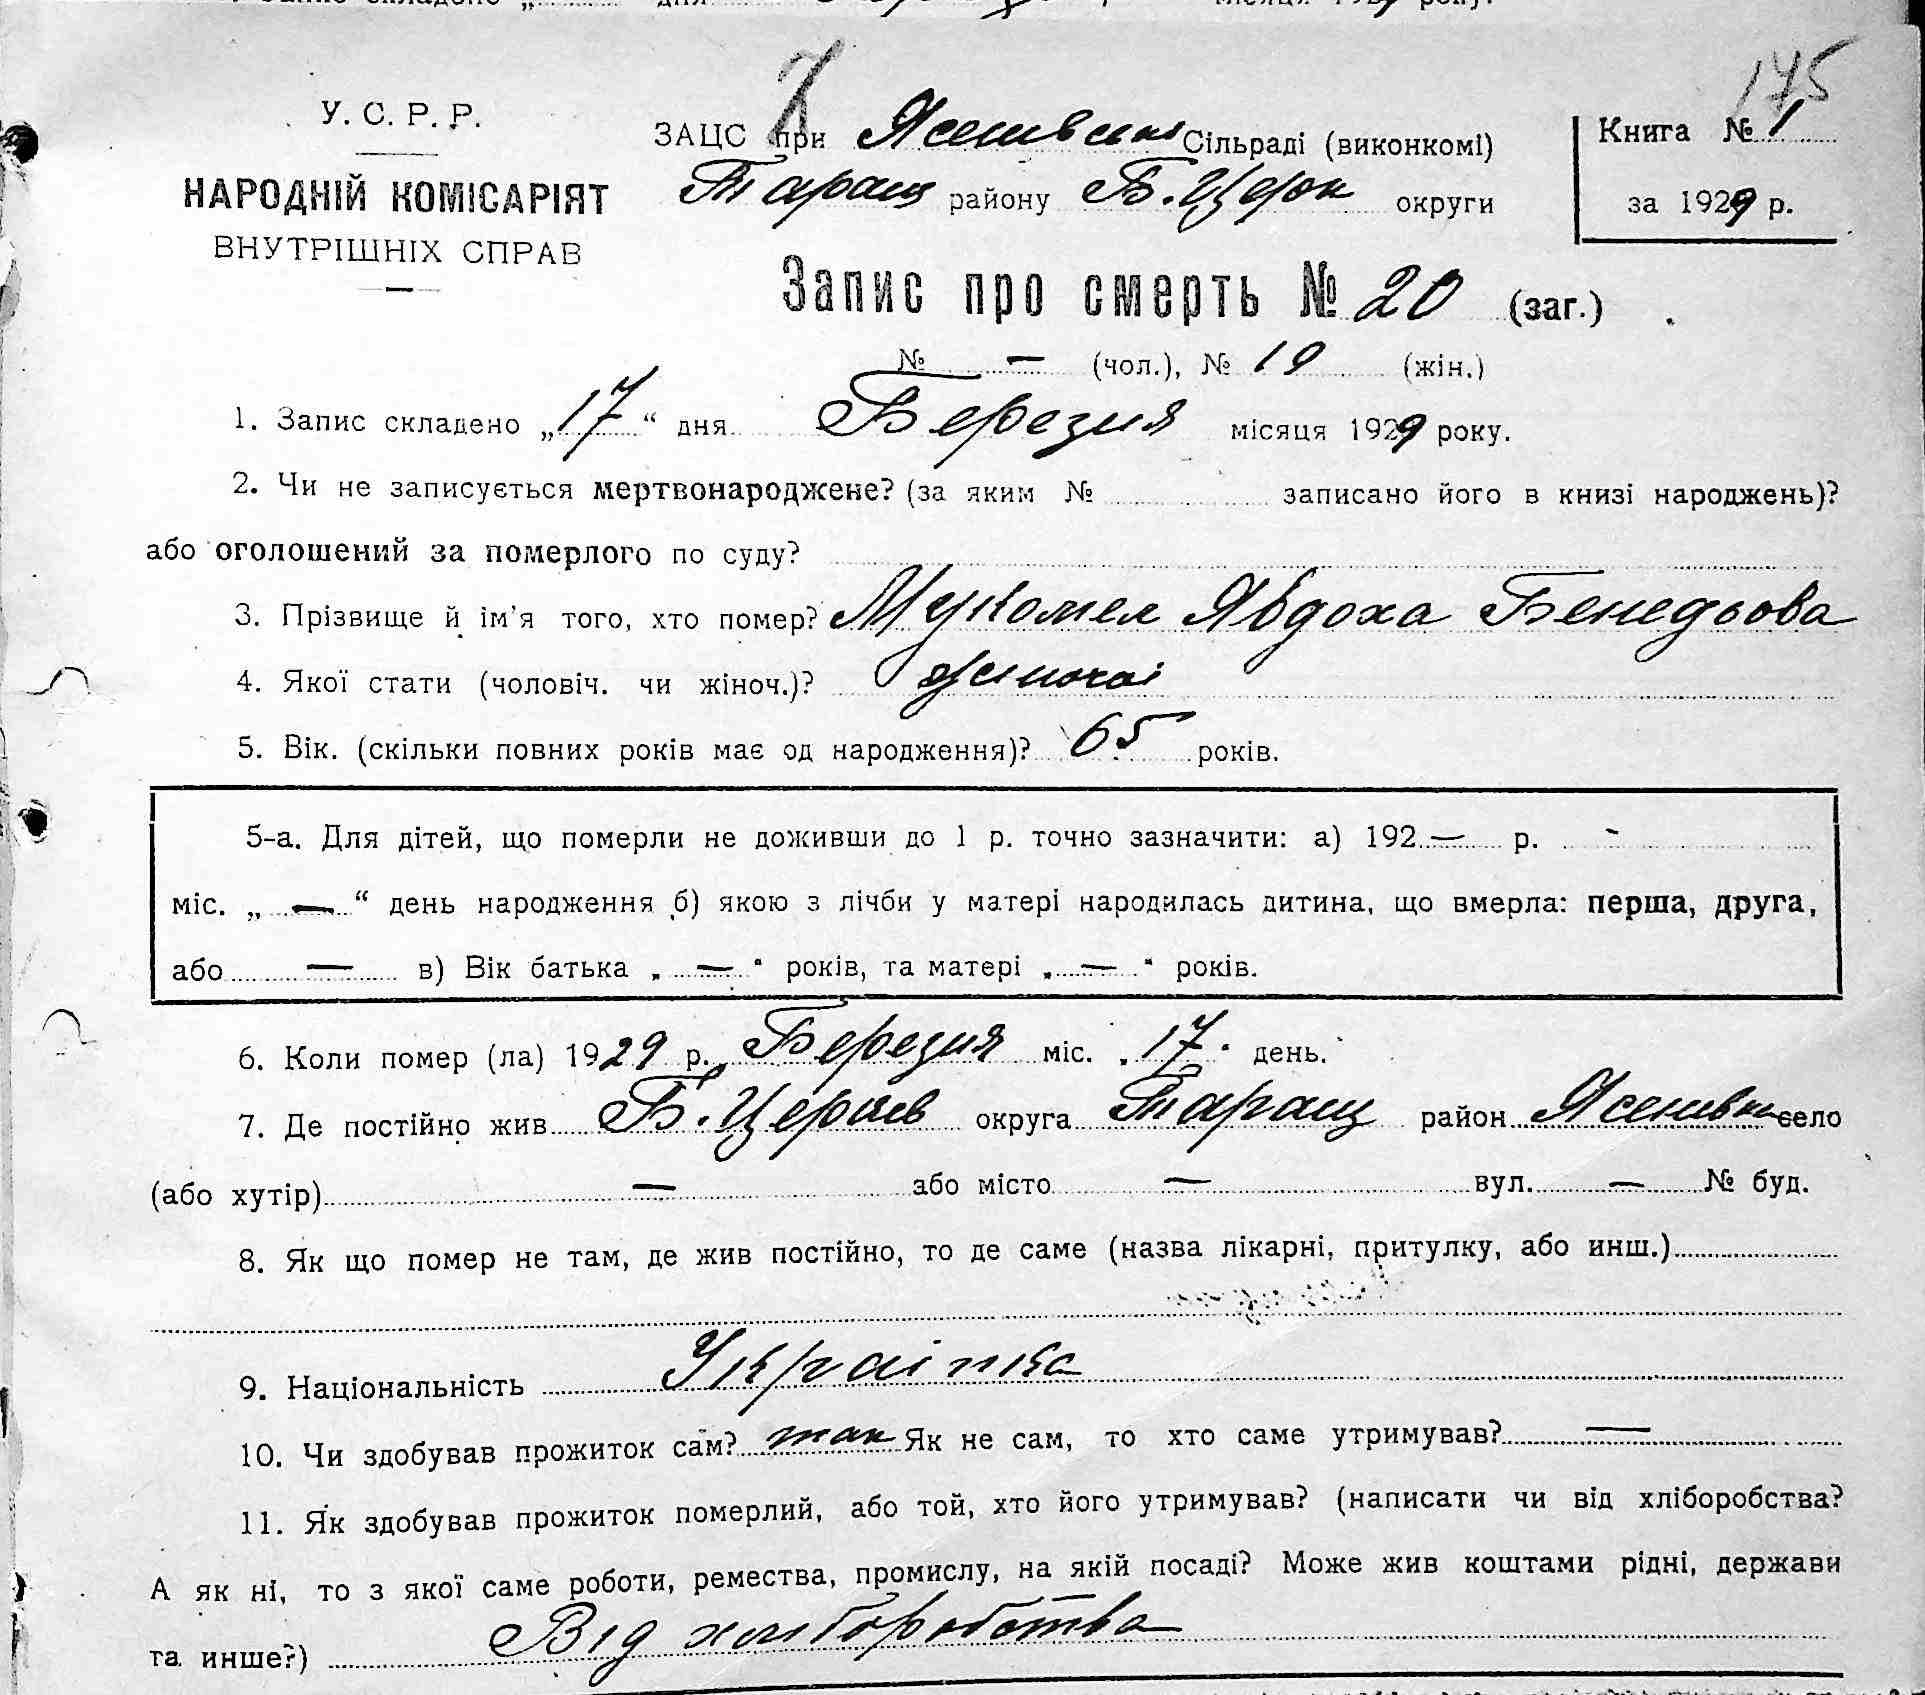 175
У. С. Р. Р.
НАРОДНІЙ КОМІСАРІЯТ
ВНУТРІШНІХ СПРАВ
ЗАЦС при Ясенівські Сільраді (виконкомі)
Таращ району Б. Церк округи
Книга № 1
за 1929 р.
Запис про смерть № 20 (заг.)
№ — (чол.), № 19 (жін.)
1. Запис складено „17“ дня Березня місяця 1929 року.
2. Чи не записується мертвонароджене? (за яким № записано його в книзі народжень)?
або оголошений за померлого по суду?
3. Прізвище й ім'я того, хто помер? Мукомел Явдоха Бенедьова
4. Якої стати (чоловіч. чи жіноч.)? жіночої
5. Вік. (скільки повних років має од народження)? 65 років.
5-а. Для дітей, що померли не доживши до 1 р. точно зазначити: а) 192 — р. -
міс. „ — “ день народження б) якою з лічби у матері народилась дитина, що вмерла: перша, друга,
або — в) Вік батька „ — “ років, та матері „ — “ років.
6. Коли помер (ла) 1929 р. Березня міс. „17“ день.
7. Де постійно жив Б. Церків округа Таращ район Ясенівка село
(або хутір) — або місто — вул. — № буд.
8. Як що помер не там, де жив постійно, то де саме (назва лікарні, притулку, або инш.)
9. Національність Українка
10. Чи здобував прожиток сам? так Як не сам, то хто саме утримував? —
11. Як здобував прожиток померлий, або той, хто його утримував? (написати чи від хліборобства?
А як ні, то з якої саме роботи, ремества, промислу, на якій посаді? Може жив коштами рідні, держави
та инше?) Від хліборобства